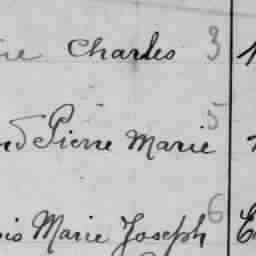 Charles 3
Pierre Marie 5
Marie Joseph 6